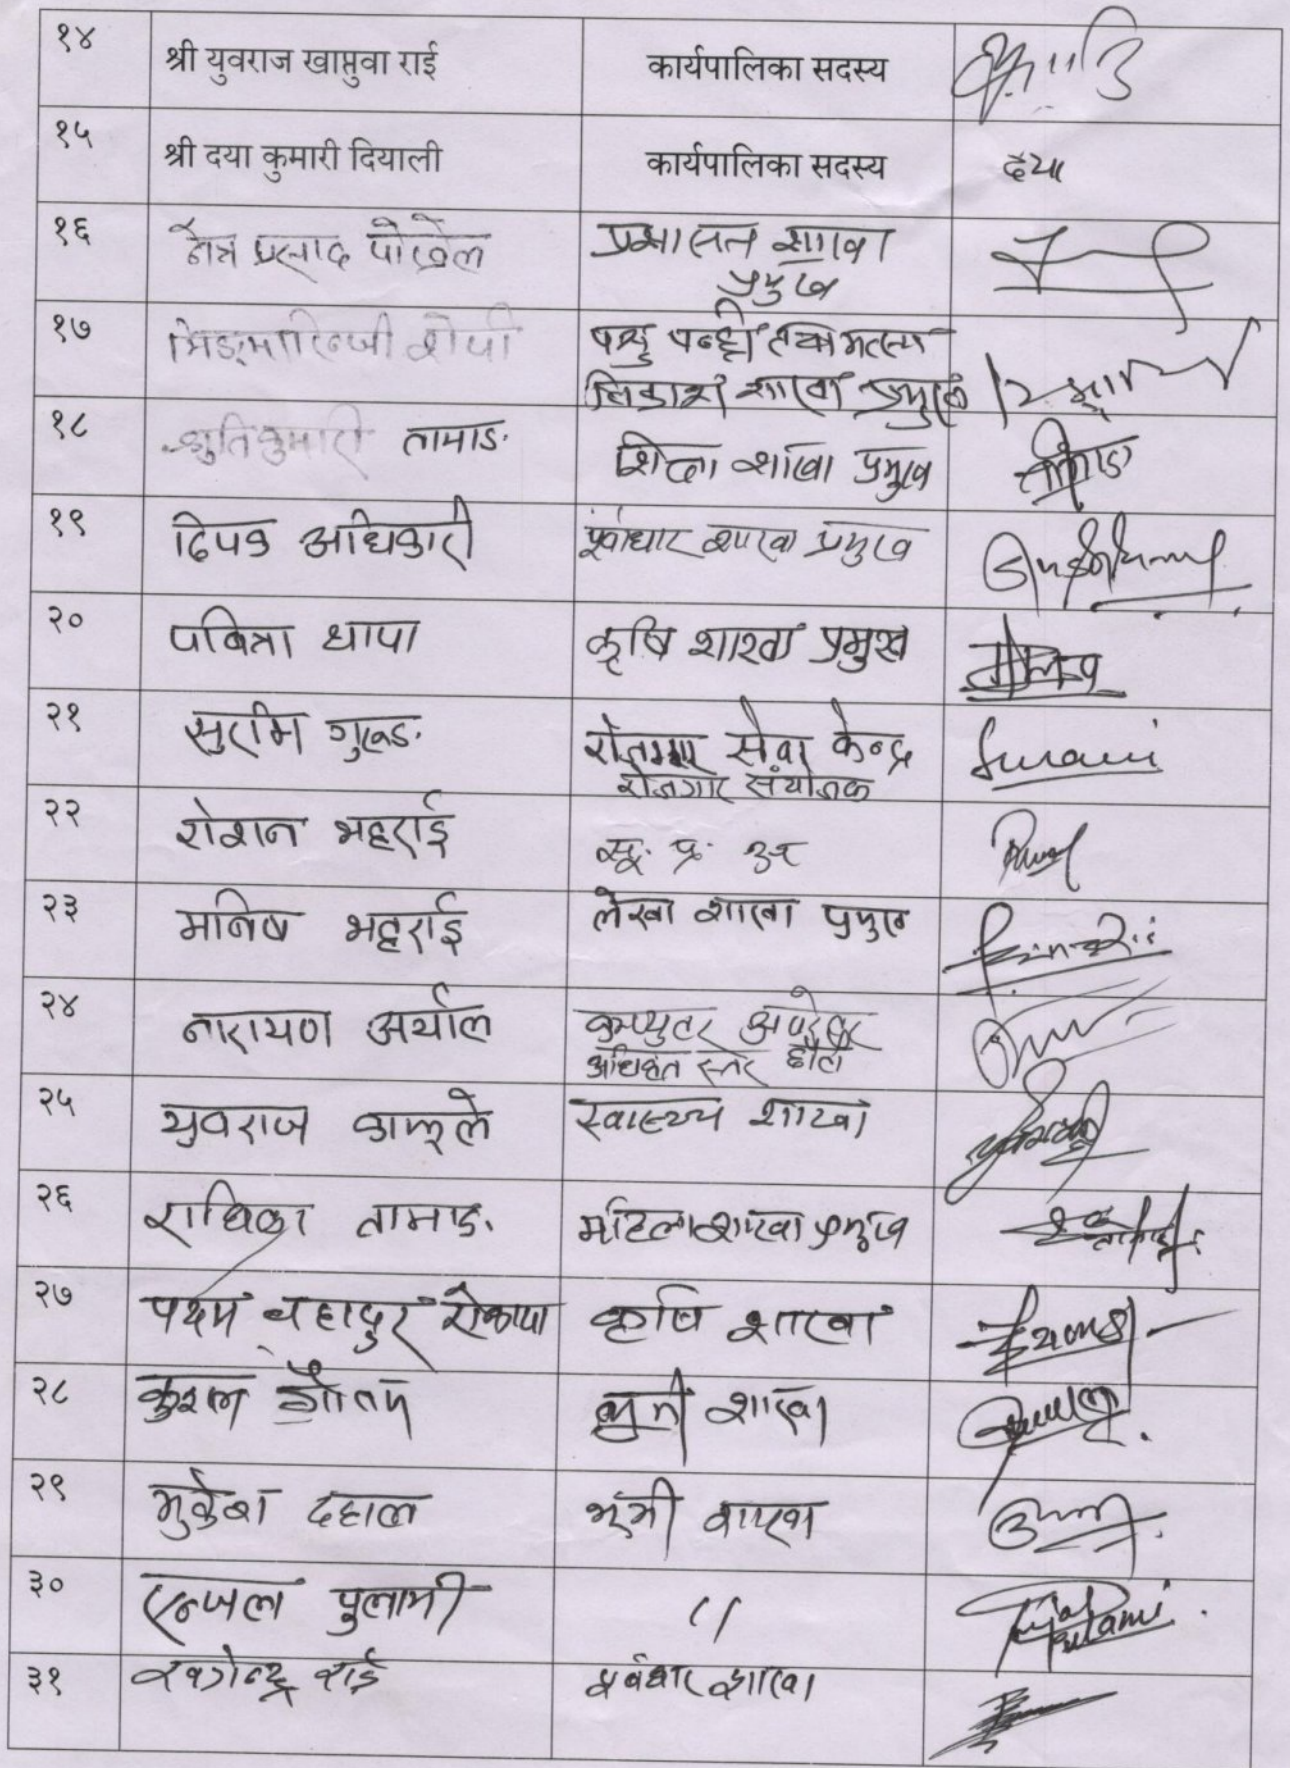 १४ श्री युवराज खाप्तुवा राई कार्यपालिका सदस्य
१५ श्री दया कुमारी दियाली कार्यपालिका सदस्य दया
१६ नेत्र प्रसाद पोखेल प्रशासन शाखा
प्रमुख
१७ शेर्पा पशु पन्छी तथा मत्स्य
विकास शाखा प्रमुख
१८ श्रुतिकुमारी तामाङ शिक्षा शाखा प्रमुख
१९ दिपक अधिकारी पूर्वाधार शाखा प्रमुख
२० पबित्रा थापा कृषि शाखा प्रमुख
२१ गुरुङ रोजगार सेवा केन्द्र
रोजगार संयोजक
२२ रोशन भट्टराई सू. प्र.
२३ मनिष भट्टराई लेखा शाखा प्रमुख
२४ नारायण अर्याल कम्प्युटर अपरेटर
अधिकृत स्तर छैटौ
२५ युवराज काफ्ले स्वास्थ्य शाखा
२६ राधिका तामाङ महिला शाखा प्रमुख
२७ पदम बहादुर रोकाया कृषि शाखा
२८ कुशल गौतम शाखा
२९ मुकेश दहाल भूमी शाखा
३० एन्जल पुलामी "
३१ खगेन्द्र राई पूर्वधार शाखा